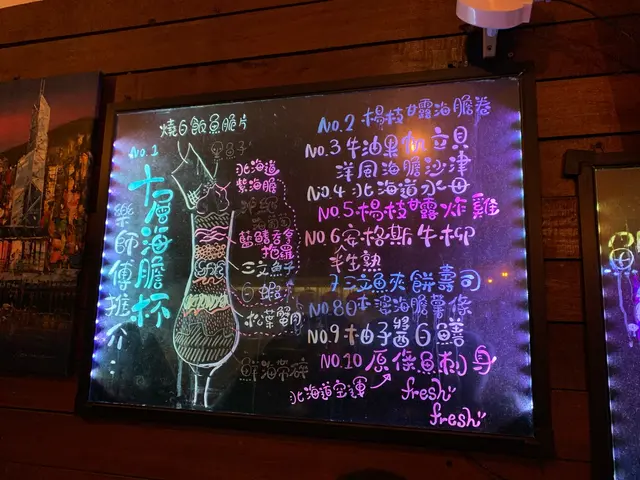 燒白飯魚脆片
NO.1
十層海膽杯
樂師傅推介:
北海道
紫海膽
藍鰭吞拿
拖羅
三文魚子
白蝦
松葉蟹肉
NO.2 楊枝甘露海膽卷
NO.3 牛油果帆立貝
洋風海膽沙津
NO.4 北海道水母
NO.5 楊枝甘露炸雞
NO 6 安格斯牛柳
半生熟
7 三文魚夾餅壽司
NO.8 日本婆海膽薯條
NO.9 柚子醬白鱔
NO.10 原條魚刺身
北海道空運
fresh
fresh